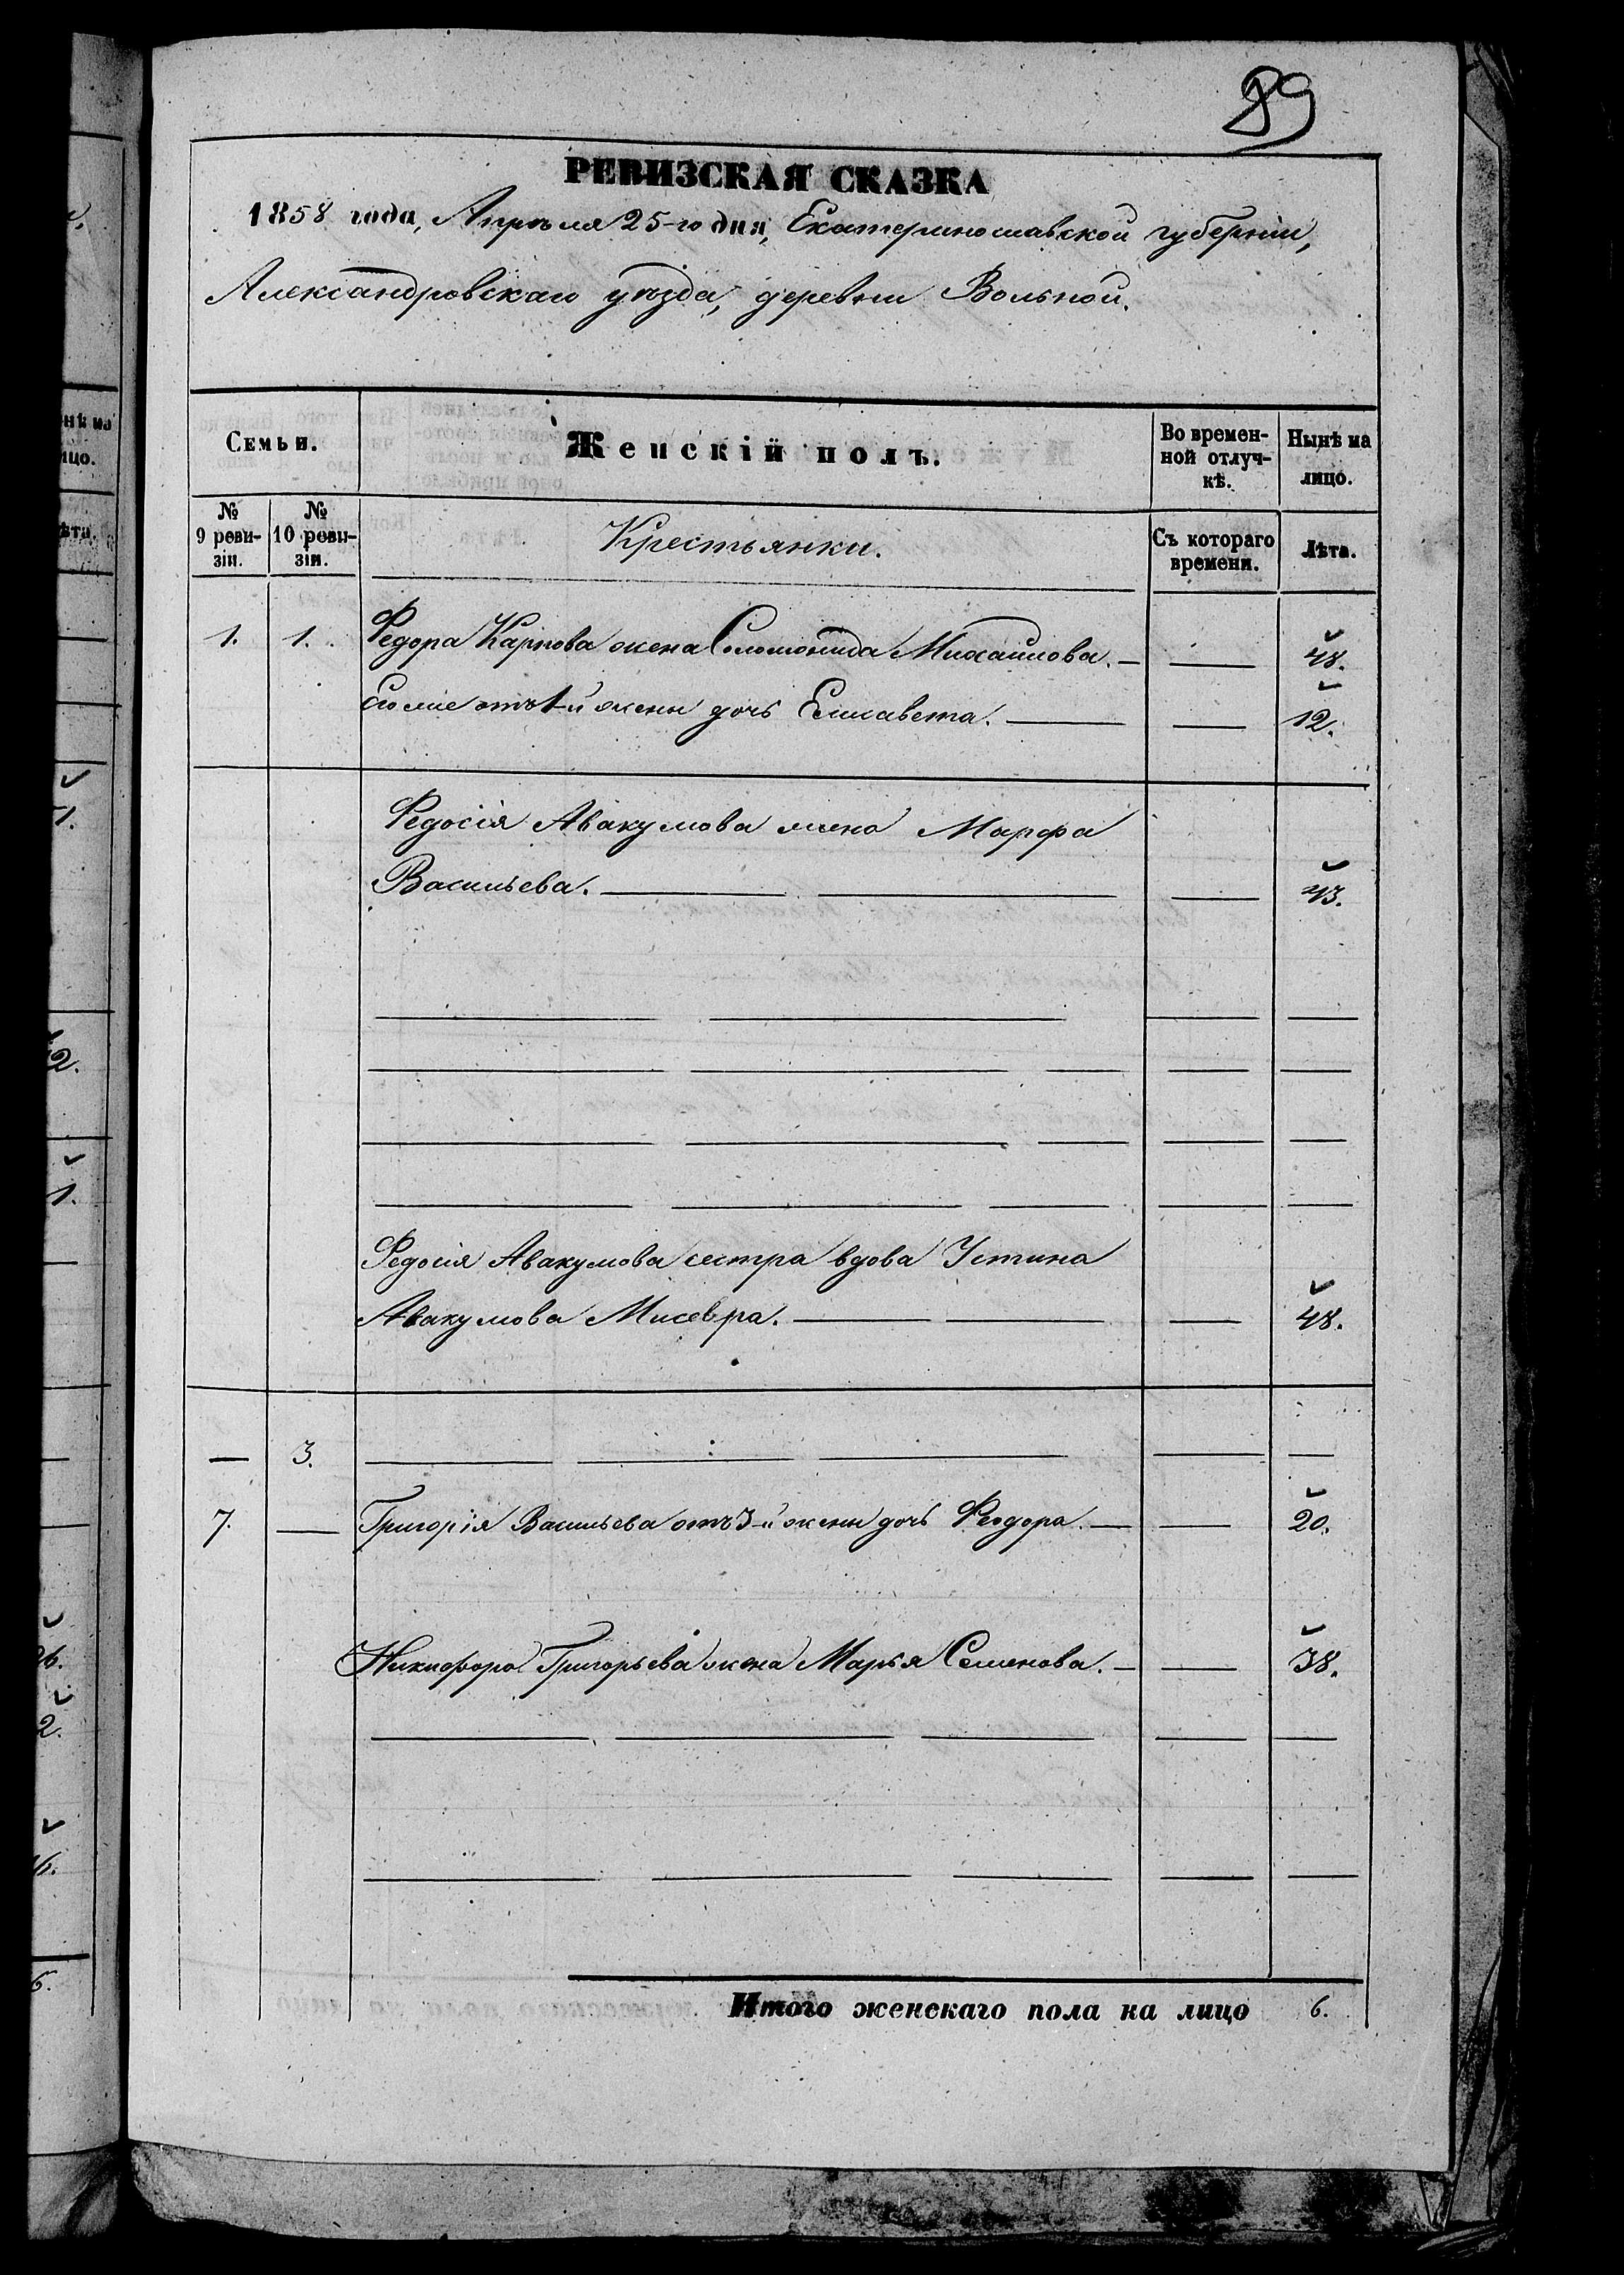 89
РЕВИЗСКАЯ СКАЗКА
1858 года, Апрѣля 25-го дня, Екатеринославской губерніи,
Александровскаго уѣзда, деревни Вольной.
Семьи. Женскій полъ. Во времен-ной отлуч-кѣ. Нынѣ на лицо.
№ 9 реви-зіи. № 10 реви-зіи. Крестьянки. Съ котораго времени. Лѣта.
1. 1. Федора Карпова жена Соломонида Михайлова. — — 48.
его же отъ 1-й жены дочь Елисавета. — — 12.
Федосія Авакумова жена Марфа
Васильева. — — 43.
Федосія Авакумова сестра вдова Устина
Авакумова Мисевра. — — 48.
— 3. — — —
7. — Григорія Васильева отъ 3-й жены дочь Феодора. — — 20.
Никифора Григорьева жена Марья Семенова. — — 38.
Итого женскаго пола на лицо 6.